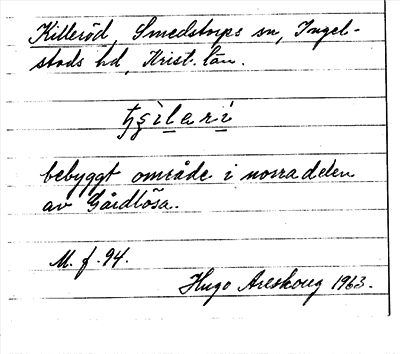 Killeröd, Smedstorps sn, Ingel-
stads hd, Krist. län.
bebyggt område i norra delen
av Gårdlösa.
M. f. 94.
Hugo Areskoug 1963.